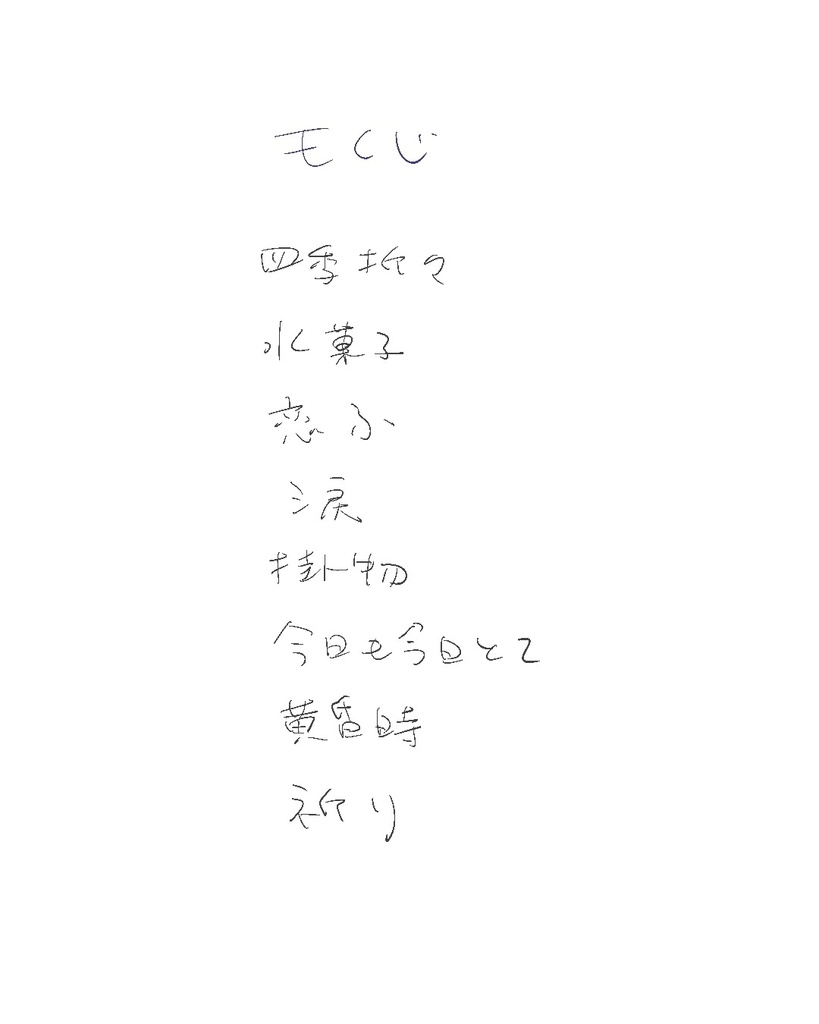 もくじ
四季折々
水菓子
恋ふ
涙
掛物
今日も今日とて
黄昏時
祈り